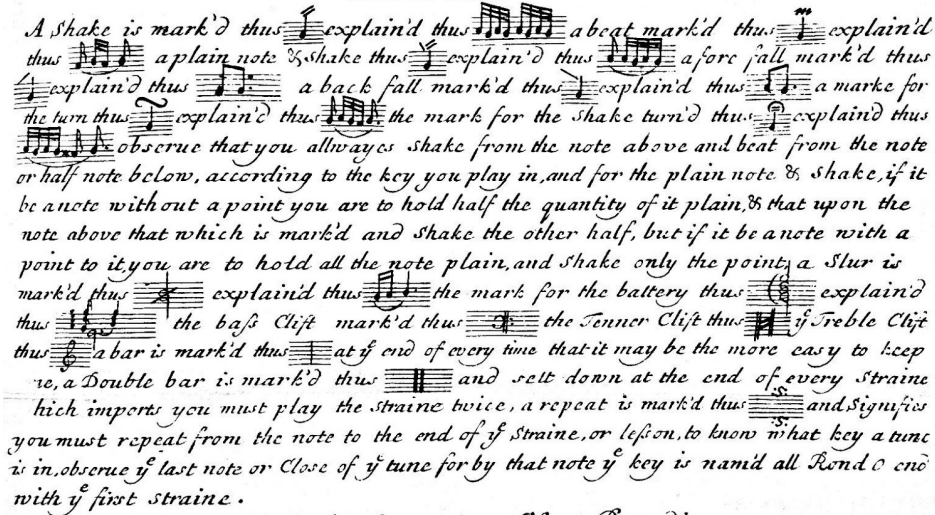 A Shake is mark'd thus explain'd thus a beat mark'd thus explain'd
thus a plain note & Shake thus explain'd thus a fore fall mark'd thus
explain'd thus a back fall mark'd thus explain'd thus a marke for
the turn thus explain'd thus the mark for the Shake turn'd thus explain'd thus
obserue that you allwayes Shake from the note above and beat from the note
or half note below, according to the key you play in, and for the plain note & Shake, if it
be a note without a point you are to hold half the quantity of it plain, & that upon the
note above that which is mark'd and Shake the other half, but if it be a note with a
point to it, you are to hold all the note plain, and Shake only the point, a Slur is
mark'd thus explain'd thus the mark for the battery thus explain'd
thus the baſs Clift mark'd thus the Tenner Clift thus yᵉ Treble Clift
thus a bar is mark'd thus at yᵉ end of every time that it may be the more easy to keep
a Double bar is mark'd thus and sett down at the end of every Straine
hich imports you must play the straine twice, a repeat is mark'd thus :S: and Signifies
you must repeat from the note to the end of yᵉ Straine, or leſson, to know what key a tune
is in, obserue yᵉ last note or Close of yᵉ tune for by that note yᵉ key is nam'd all Rond O end
with yᵉ first straine.